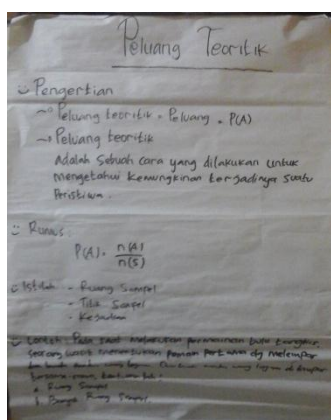 Peluang Teoritik
Pengertian
Peluang teoritik = Peluang = P(A)
Peluang teoritik
adalah sebuah cara yang dilakukan untuk
mengetahui kemungkinan terjadinya suatu
Peristiwa.
Rumus:
P(A) = n(A)
n(S)
Istilah - Ruang Sampel
- Titik Sampel
- Kejadian
Contoh: Pada saat melakukan permainan bulu tangkis,
seorang wasit menentukan pemain pertama dg melempar
Ruang Sampel
Banyak Ruang Sampel.